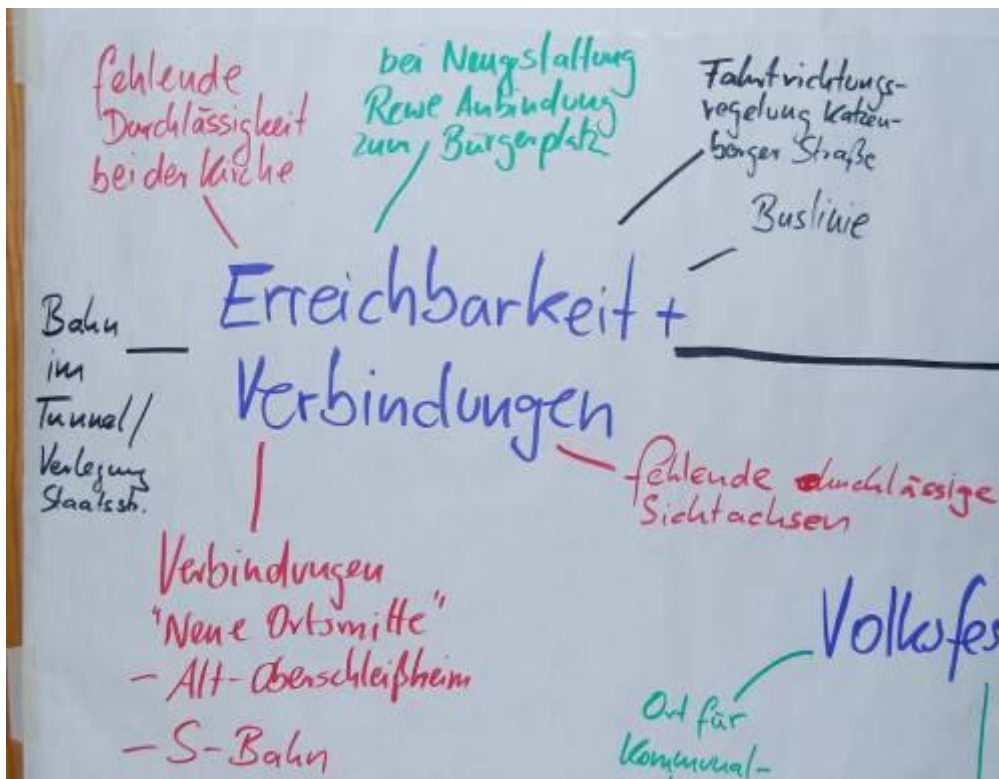 fehlende
Durchlässigkeit
bei der Kirche
bei Neugestaltung
Rewe Anbindung
zum Bürgerplatz
Fahrtrichtungs-
regelung Katzen-
berger Straße
Buslinie
Erreichbarkeit +
Verbindungen
Bahn
im
Tunnel/
Verlegung
Staatsstr.
fehlende durchlässige
Sichtachsen
Verbindungen
"Neue Ortsmitte"
- Alt-Oberschleißheim
- S-Bahn
Volksfes
Ort für
Kommunal-